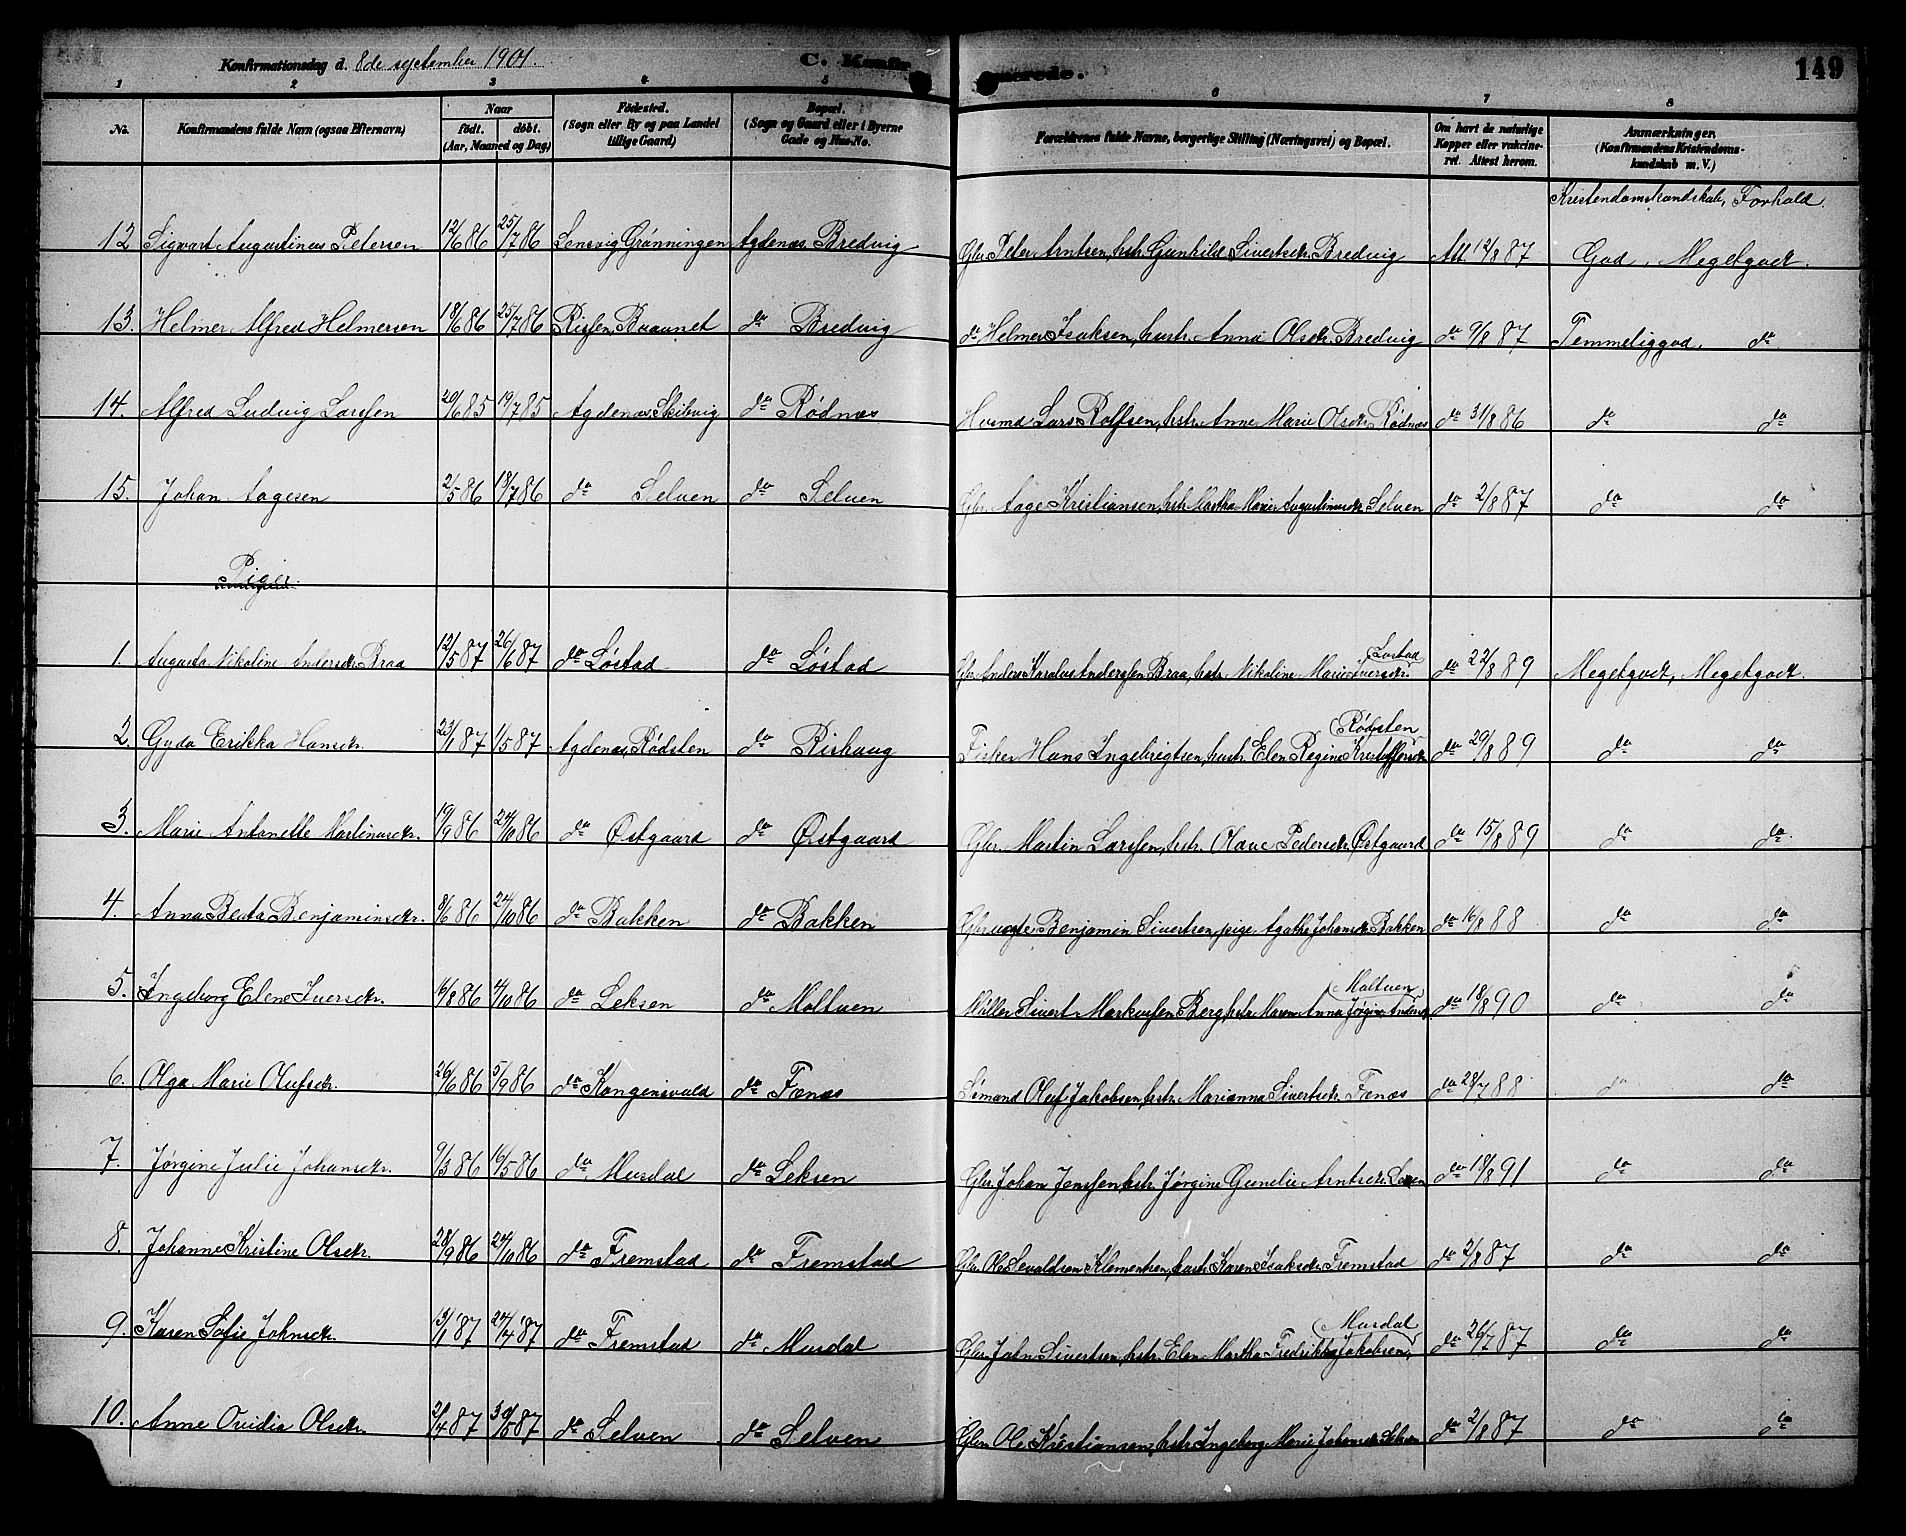 Konfirmationsdag d. 8de september 1901. C. Konfirmerede. 149
1 2 3 4 5 6 7 8
No. Konfirmandens fulde Navn (ogsaa Efternavn) Naar født. døbt. (Aar, Maaned og Dag) Fødested. (Sogn eller By og paa Landet tillige Gaard) Bopæl. (Sogn og Gaard eller i Byerne Gade og Hus-No. Forældrenes fulde Navne, borgerlige Stilling (Næringsvei) og Bopæl. Om havt de naturlige Kopper eller vakcineret. Attest herom. Anmærkninger. (Konfirmandens Kristendomskundskab m. V.)
Kristendomskundskab, Forhold.
12 Sigvart Augustinus Petersen 12/6 86 25/7 86 Lensvig Grønningen Agdenæs Bredvig Gbr. Peter Arntsen, hstr. Gunhild Sivertsdr. Bredvig Att. 12/8 87 God, Megetgodt.
13. Helmer Alfred Helmersen 18/6 86 25/7 86 Rissen, Baaanet do Bredvig do Helmer Isaksen, hustr. Anna Olsdr. Bredvig do 9/8 87 Temmeliggod. do
14. Alfred Ludvig Larssen 20/6 85 19/7 85 Agdenæs Skibvig do Rødnæs Husmd Lars Rolfsen, hstr. Anne Marie Olsdr. Rødnæs do 31/8 86 do do
15. Johan Aagesen 2/5 86 18/7 86 do Selven do Selven Gbr. Aage Kristiansen, hstr. Martha Marie Augustinusdr. Selven do 2/8 87 do do
Pige
1. Augusta Nikoline Andersdr. Braa 12/5 87 26/6 87 do Løstad do Løstad Gbr. Anders Karolus Anderssen Braa, hstr. Nikoline Marie Iversdr. Løstad do 22/8 89 Megetgodt, Megetgodt.
2. Gyda Erikka Hansdr. 23/1 87 1/5 87 Agdenæs, Rødsten do Rishaug Fisker Hans Ingebrigtsen, hustr. Elen Regine Kristoffersdr. Rødsten do 29/8 89 do do
3. Marie Antonette Martinusdr. 19/9 86 24/10 86 do Østgaard do Østgaard Gbr. Martin Larssen, hstr. Olave Pedersdr. Østgaard do 15/8 89 do do
4. Anna Berta Benjaminsdr. 8/6 86 24/10 86 do Bakken do Bakken Benjamin Sivertsen, pige Agathe Johansdr. Bakken do 16/8 88 do do
5. Ingeborg Elene Iversdr. 16/8 86 4/10 86 do Leksen do Moltuen Møller Sivert Markussen Berg hstr. Maren Anna Jørgine Andersdr. Moltuen do 18/8 90 do do
6. Olga Marie Olufsdr. 26/6 86 5/9 86 do Kongensvold do Fænæs Sømand Oluf Jakobsen, hstr. Marianna Sivertsdr. Fænæs do 28/7 88 do do
7. Jørgine Julie Johansdr. 9/3 86 16/5 86 do Mærdal do Leksen Gbr. Johan Jenssen, hstr. Jørgine Gunelie Arntsdr. do 18/8 91 do do
8. Johanne Kristine Olsdr. 28/9 86 24/10 86 do Fremstad do Fremstad Gbr. Ole Sevaldsen Klementsen, hustr. Karen Isaksdr. Fremstad do 2/8 87 do do
9. Karen Sofie Johnsdr. 13/1 87 24/4 87 do Fremstad do Mærdal Gbr. John Sivertsen, hstr. Elen Martha Fredrikke Jakobsen, Mærdal do 26/7 87 do do
10. Anne Ovidia Olsdr. 2/4 87 30/5 87 do Selven do Selven Gbr. Ole Kristiansen, hstr. Ingeborg Marie Johansdr. Selven do 2/8 87 do do